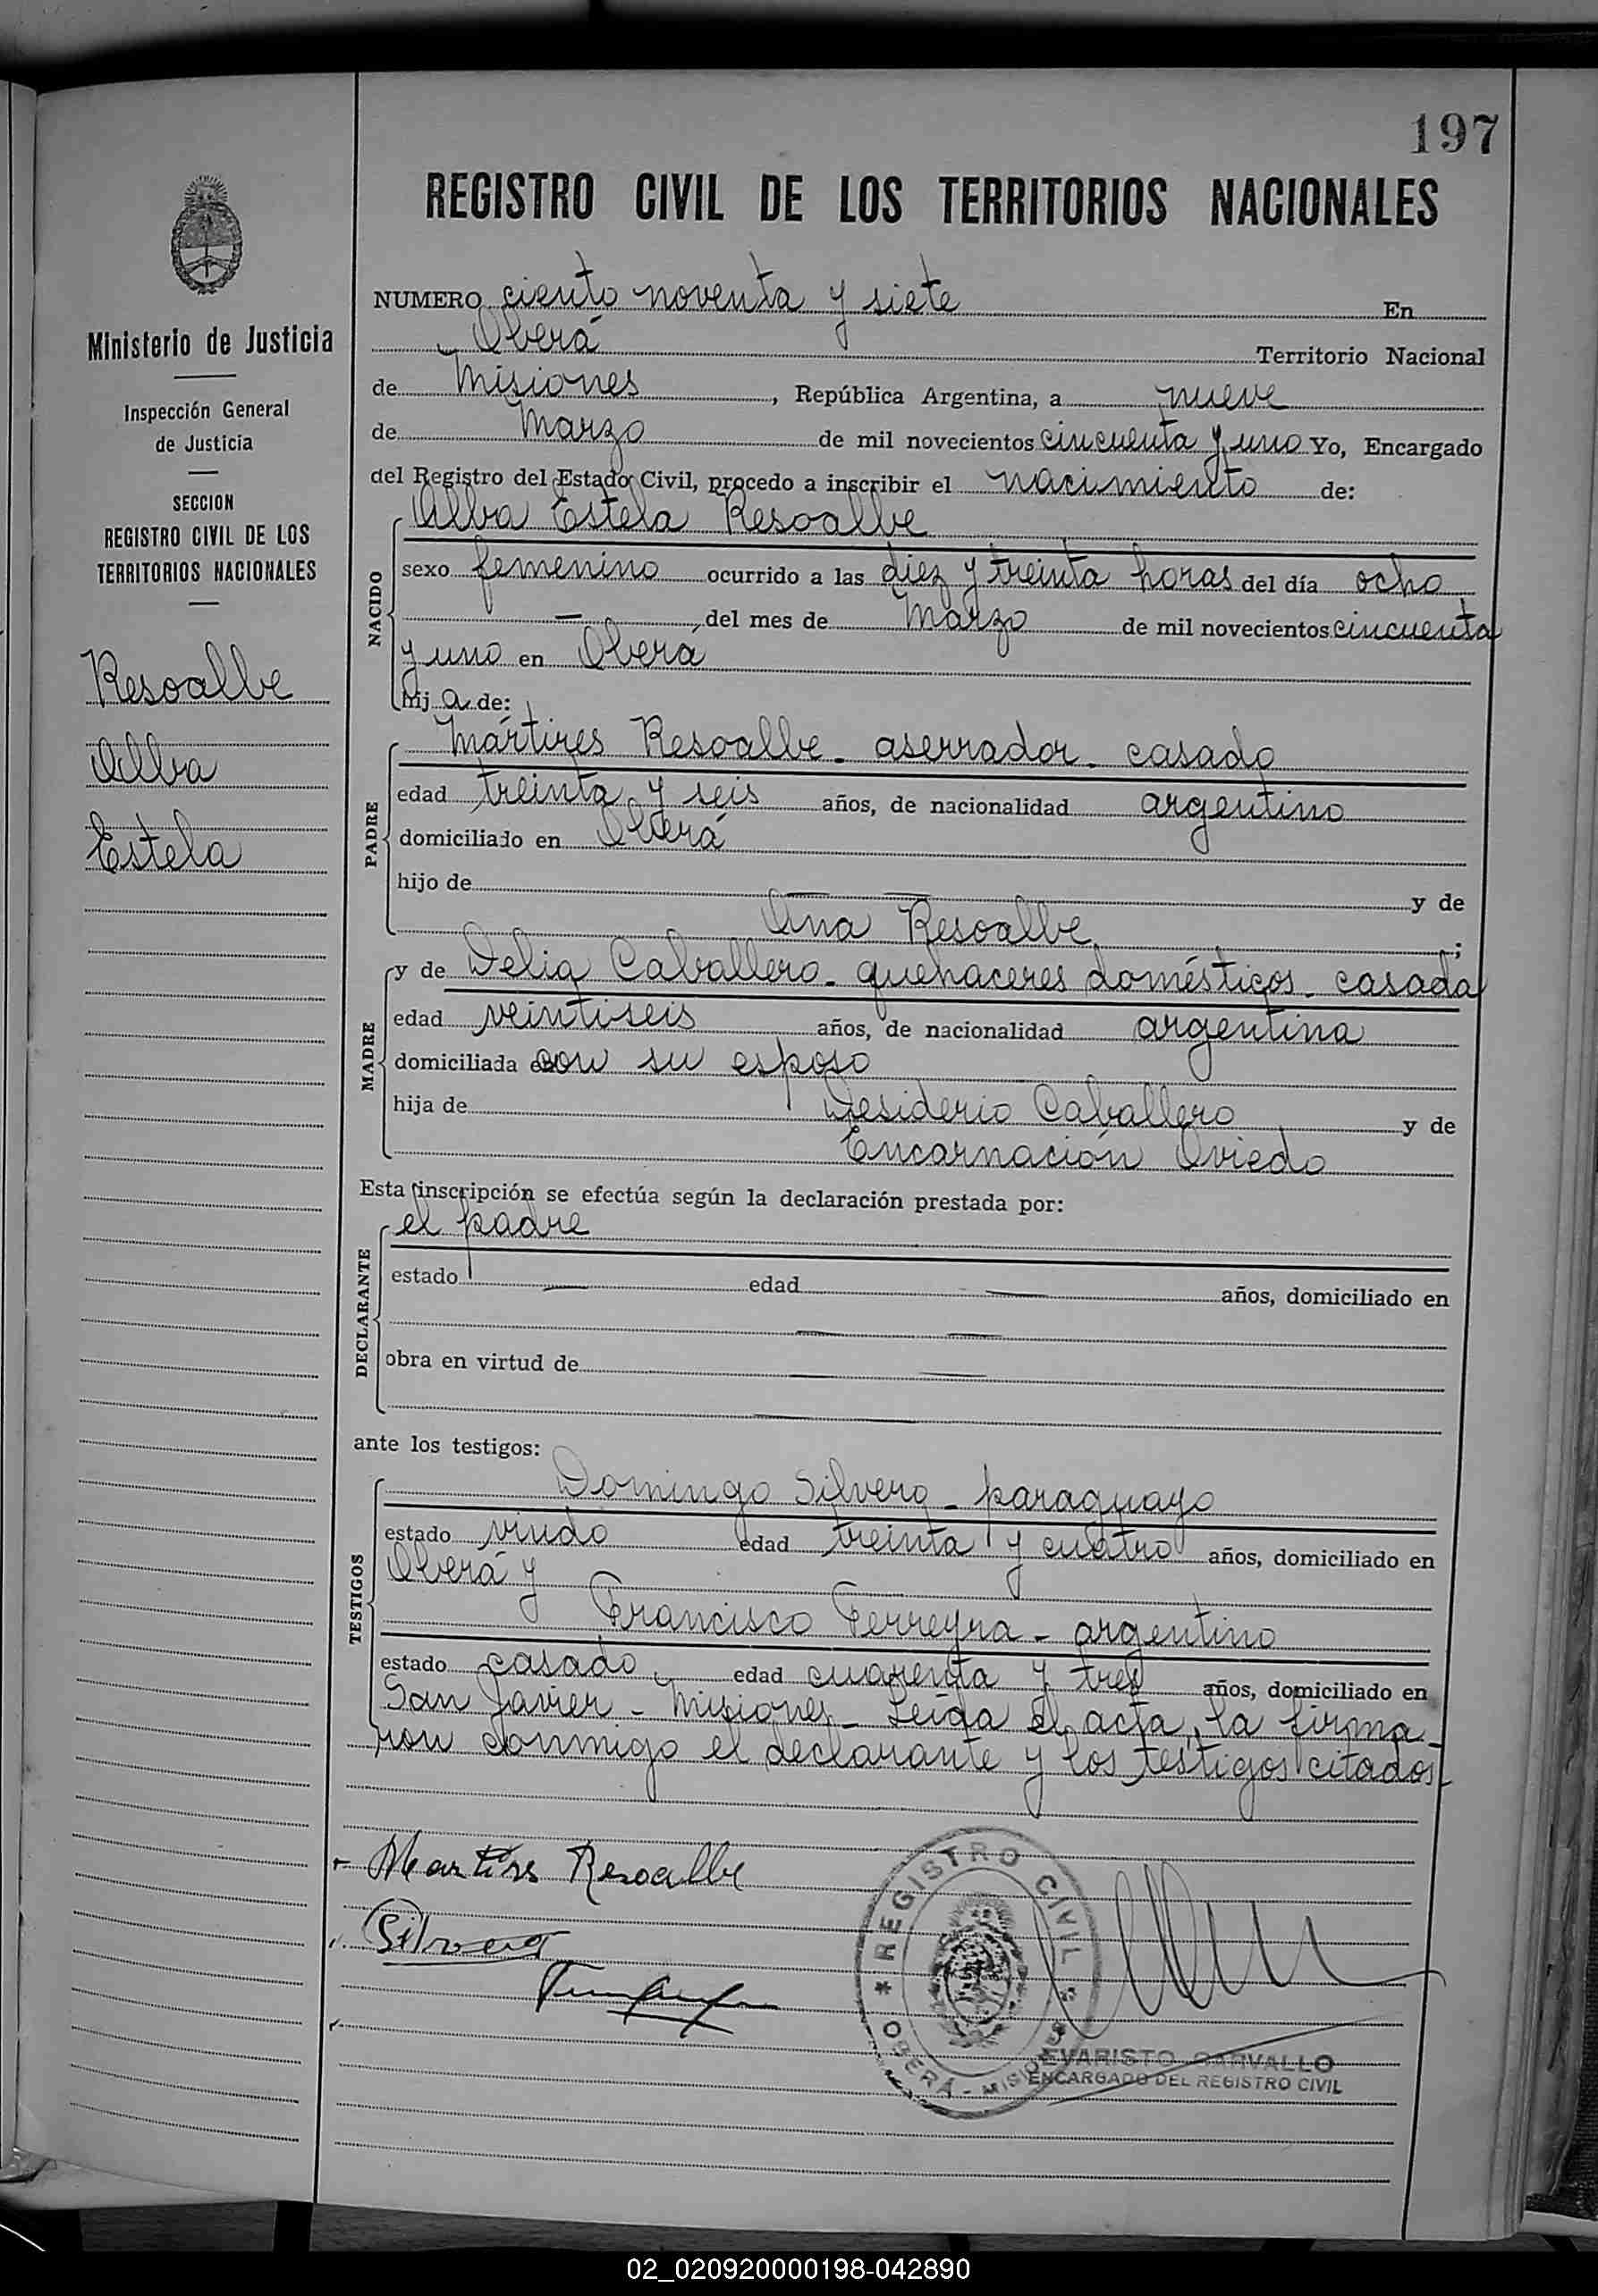 197
REGISTRO CIVIL DE LOS TERRITORIOS NACIONALES
Ministerio de Justicia
Inspección General
de Justicia
SECCION
REGISTRO CIVIL DE LOS
TERRITORIOS NACIONALES
Resoalbe
Alba
Estela
NUMERO ciento noventa y siete En
Oberá Territorio Nacional
de Misiones, República Argentina, a nueve
de Marzo de mil novecientos cincuenta y uno Yo, Encargado
del Registro del Estado Civil, procedo a inscribir el nacimiento de:
NACIDO
Alba Estela Resoalbe
sexo femenino ocurrido a las diez y treinta horas del día ocho
— del mes de Marzo de mil novecientos cincuenta
y uno en Oberá
hija de:
PADRE
Mártires Resoalbe - aserrador - casado
edad treinta y seis años, de nacionalidad argentino
domiciliado en Oberá
hijo de — — y de
Ana Resoalbe;
MADRE
y de Delia Caballero - quehaceres domésticos - casada
edad veintiseis años, de nacionalidad argentina
domiciliada con su esposo
hija de Desiderio Caballero y de
Encarnación Oviedo
Esta inscripción se efectúa según la declaración prestada por:
DECLARANTE
el padre
estado — edad — años, domiciliado en
— —
obra en virtud de — —
—
ante los testigos:
TESTIGOS
Domingo Silvero - paraguayo
estado viudo edad treinta y cuatro años, domiciliado en
Oberá y
Francisco Ferreyra - argentino
estado casado edad cuarenta y tres años, domiciliado en
San Javier - Misiones - Leída el acta, la firma-
ron conmigo el declarante y los testigos citados-
Martires Resoalbe
Silvero
REGISTRO CIVIL
OBERÁ - MISIONES
EVARISTO CARVALLO
ENCARGADO DEL REGISTRO CIVIL
02_020920000198-042890